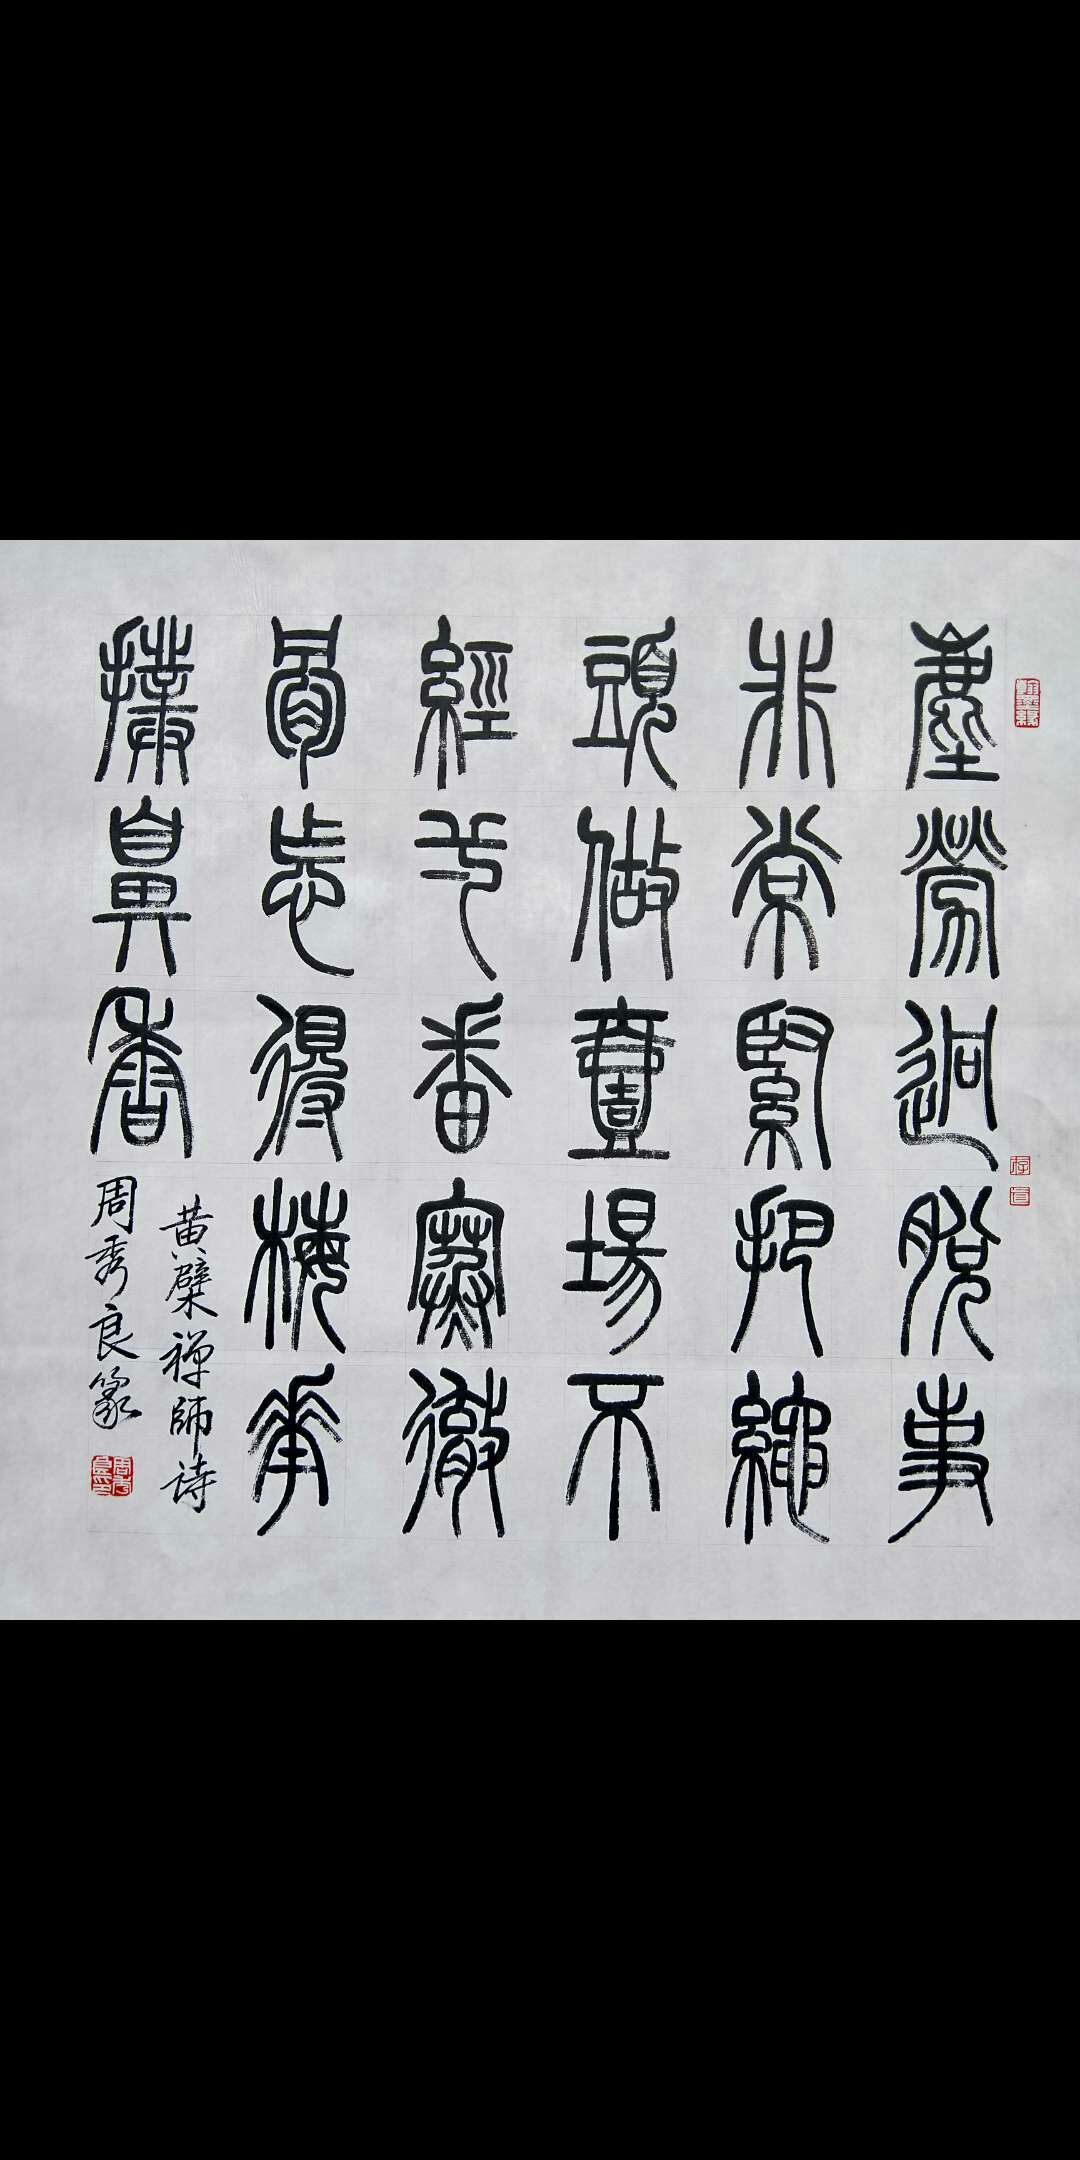 塵勞迥脫事
非常緊把繩
頭做壹場不
經弌番寒徹
骨怎得梅華
撲鼻香
黄檗禅師诗
周秀良篆